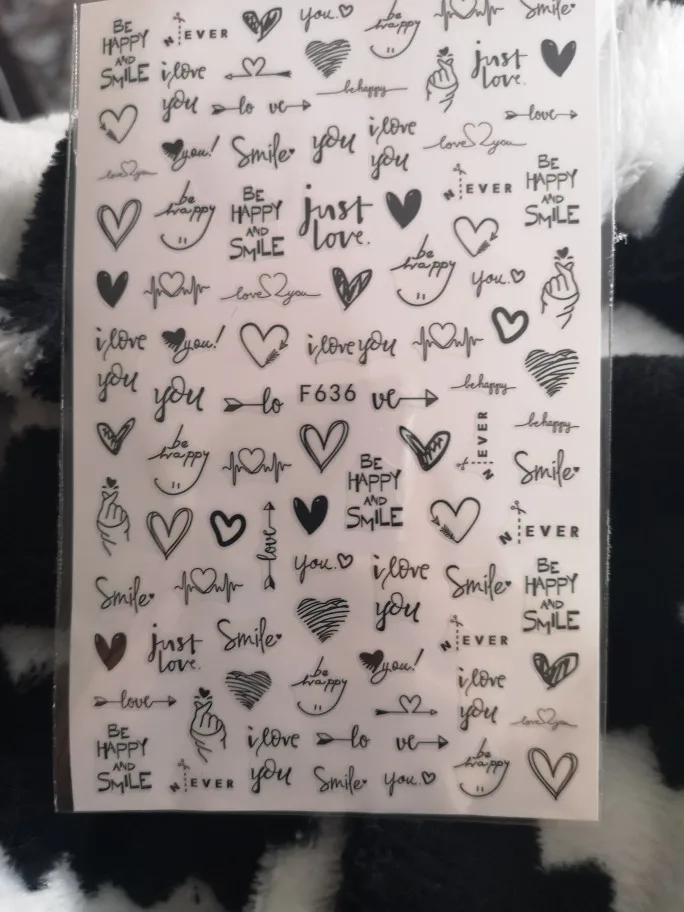 BE HAPPY AND SMILE
N EVER
you.
be happy
Smile
i love you
just love.
lo ve
be happy
love
love you
you!
Smile
you
i love you
love you
N EVER
BE HAPPY AND SMILE
be happy
BE HAPPY AND SMILE
just love.
be happy
you.
love you
i love you
you!
i love you
you
lo
F636
ve
be happy
be happy
N EVER
be happy
BE HAPPY AND SMILE
Smile
love
N EVER
you.
i love you
Smile
Smile
BE HAPPY AND SMILE
just love.
Smile
you!
N EVER
be happy
i love you
love
love you
BE HAPPY AND SMILE
i love you
lo ve
be happy
N EVER
Smile
you.